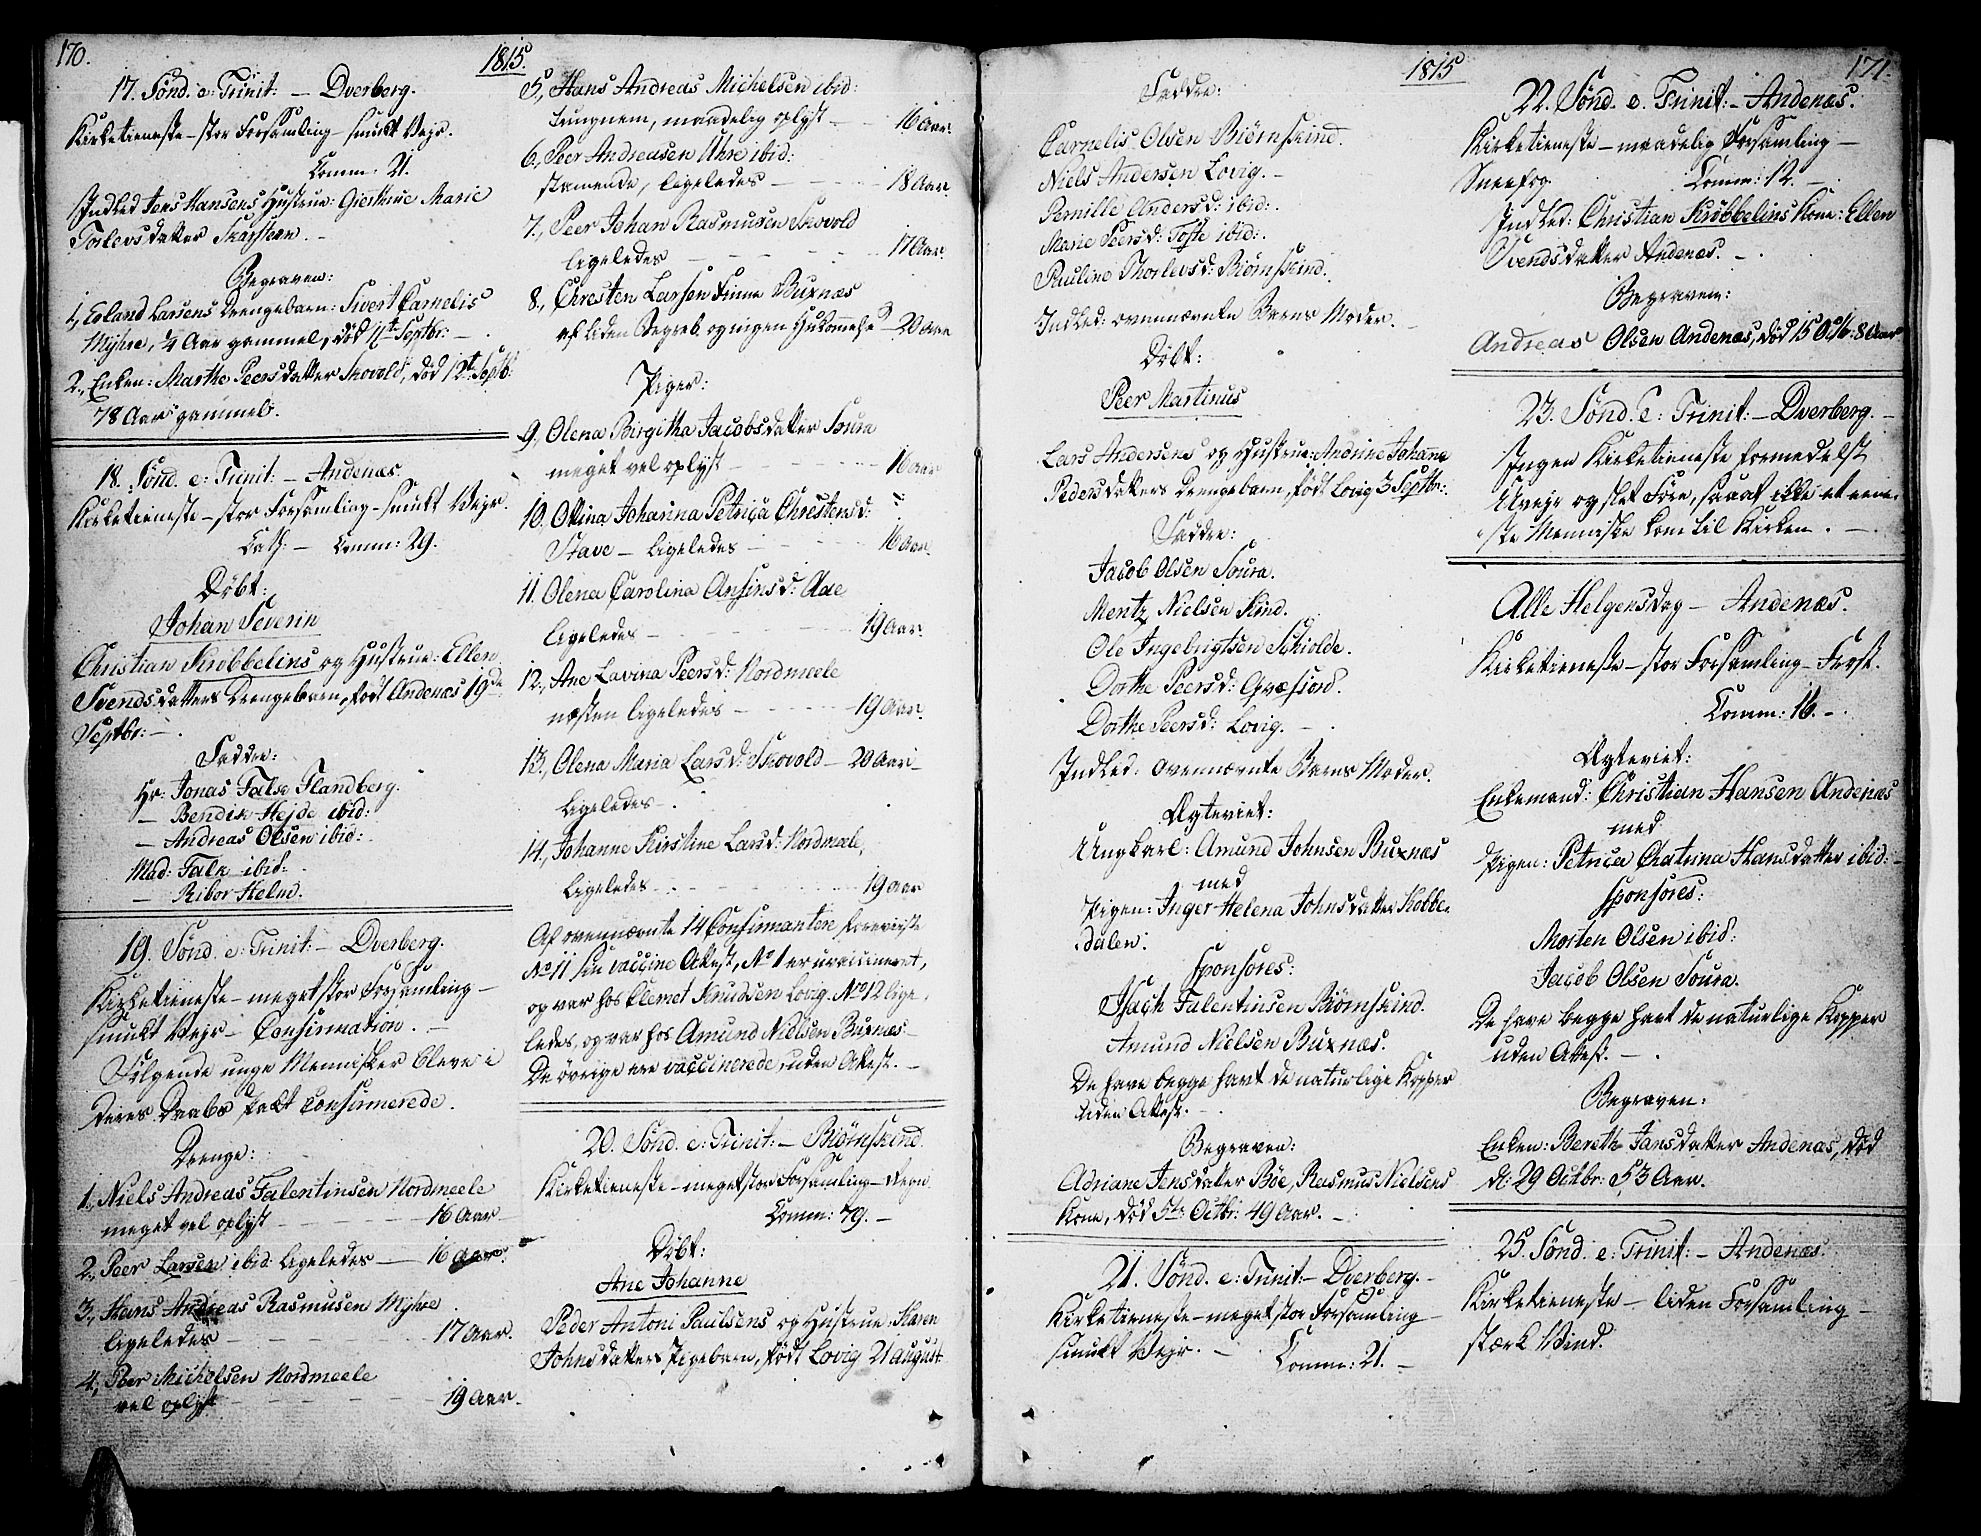 170.
1815.
17. Sønd. e: Trinit: — Dverberg.
Kirketieneste — stor Forsamling — smukt Vejr.
Comm: 21.
Indled Jens Hansens Hustrue: Giertrue Marie
Torlevsdatter Skarsteen. —
Begraven:
1, Erland Larsens Drengebarn: Sivert Cornelis
Myhre, 1/4 Aar gammel, død 11te Septbr: —
2., Enken: Marthe Peersdatter Skovold, død 12te Septb:
78 Aar gammel.
18. Sønd. e: Trinit: — Andenæs
Kirketieneste — stor Forsamling — smukt Vejr.
Cath: — Comm: 29.
Døbt:
Johan Severin
Christian Krøbbelins og Hustrue: Ellen
Svendsdatters Drengebarn, født Andenæs 19de
Septbr: — .
Faddre:
Hr: Jonas Falk Flandberg.
— Bendix Hejde ibid:
— Andreas Olsen ibid:
Mad: Falk ibid:
— Ribor Helm.
19. Sønd. e: Trinit: — Dverberg.
Kirketieneste — meget stor Forsamling —
smukt Vejr — Confirmation. —
Følgende unge Mennisker bleve i
deres Daabs Pakt confirmerede.
Drenge:
1., Niels Andreas Falentinsen Nordmeele
meget vel oplyst — 16 Aar
2., Peer Larsen ibid: ligeledes — 16 Aar.
3., Hans Andreas Rasmusen Myhre
ligeledes — 17 Aar.
4., Peer Michelsen Nordmeele
vel oplyst — 19 Aar.
5., Hans Andreas Michelsen ibid:
tungnem, maadelig oplyst — 16 Aar.
6., Peer Andreasen Uhre ibid:
stamende, ligeledes — 18 Aar
7., Peer Johan Rasmusen Skovold
ligeledes — 17 Aar.
8., Christen Larsen Finne Buxnæs
af liden Begreb og ingen Hukommelse — 20 Aar
Piger:
9, Olena Birgitha Jacobsdatter Soura
meget vel oplyst — 16 Aar
10. Olina Johanna Petrica Christensd:
Stave — ligeledes — 16 Aar.
11. Olena Carolina Ansinsd: Aae
ligeledes — 19 Aar.
12., Ane Lavina Peersd: Nordmeele
næsten ligeledes — 19 Aar.
13., Olena Maria Larsd: Skovold — 20 Aar —
ligeledes — .
14., Johanne Kirstine Larsd: Nordmeele,
ligeledes — 19 Aar
Af ovennævnte 14 Confirmantere foreviste
No 11 sin vaccine Attest, No 1 er uvaccineret,
og var hos Clemet Knudsen Lovig. No 12 lige-
ledes, og var hos Amund Nielsen Buxnæs —
De øvrige ere vaccinerede uden Attest. —
20. Sønd. e: Trinit: — Biørnskind
Kirketieneste — meget stor Forsamling — Regn
Comm: 79. —
Døbt:
Ane Johanne
Peder Antoni Paulsens og Hustrue: Karen
Johnsdatters Pigebarn, født Lovig 21 August
1815
171.
Faddre:
Carnelis Olsen Biørnskind.
Niels Andersen Lovig. —
Pernille Andersd: ibid:
Marie Peersd: Tofte ibid:
Pauline Thorlevsd: Biørnskind.
Indled: ovennævnte Barns Moder. —
Døbt:
Peer Martinus
Lars Andersens og Hustrue: Andrine Johanne
Pedersdatters Drengebarn, født Lovig 3 Septbr:
Faddre:
Jacob Olsen Soura.
Mentz Nielsen Kind.
Ole Ingebrigtsen Schiolde.
Dorthe Peersd: Qvæfiord.
Dorthe Peersd: Lovig. —
Indled: ovennævnte Barns Moder.
Ægteviet:
Ungkarl: Amund Johnsen Buxnæs
med
Pigen: Inger Helena Johnsdatter Kobbe-
dalen.
Sponsores:
Isach Falentinsen Biørnskind.
Amund Nielsen Buxnæs.
De have begge havt de naturlige Kopper
uden Attest. —
Begraven:
Adriane Jensdatter Böe, Rasmus Nielsens
Kone, død 5te Octbr: 49 Aar. —
21. Sønd. e: Trinit: — Dverberg. —
Kirketieneste — meget stor Forsamling —
smukt Vejr. — Comm: 21. —
22. Sønd. e. Trinit: — Andenæs.
Kirketieneste — maadelig Forsamling —
Sneefog. Comm: 12. —
Indled: Christian Krøbbelins Kone: Ellen
Svendsdatter Andenæs. —
Begraven:
Andreas Olsen Andenæs, død 15 Octb: 8 Aar
23. Sønd. e: Trinit: — Dverberg. —
Ingen Kirketieneste formedelst
Uvejr og slet Føre, saaat ikke et eene-
ste Menniske kom til Kirken. —
Alle Helgensdag — Andenæs.
Kirketieneste — stor Forsamling — Frost.
Comm: 16. —
Ægteviet:
Enkemand: Christian Hansen Andenæs
med
Pigen: Petrica Chatrina Hansdatter ibid: —
Sponsores:
Morten Olsen ibid:
Jacob Olsen Soura.
De have begge havt de naturlige Kopper
uden Attest. — .
Begraven:
Enken: Bereth Jansdatter Andenæs, død
d: 29 Octbr: 53 Aar.
25. Sønd. e: Trinit: — Andenæs.
Kirketieneste — liden Forsamling —
stærk Vind.